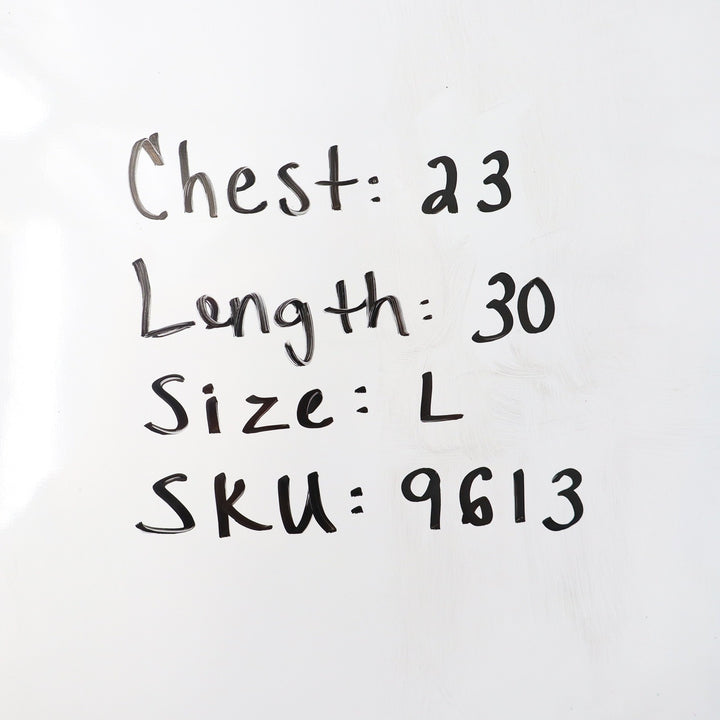 Chest: 23
Length: 30
Size: L
SKU: 9613